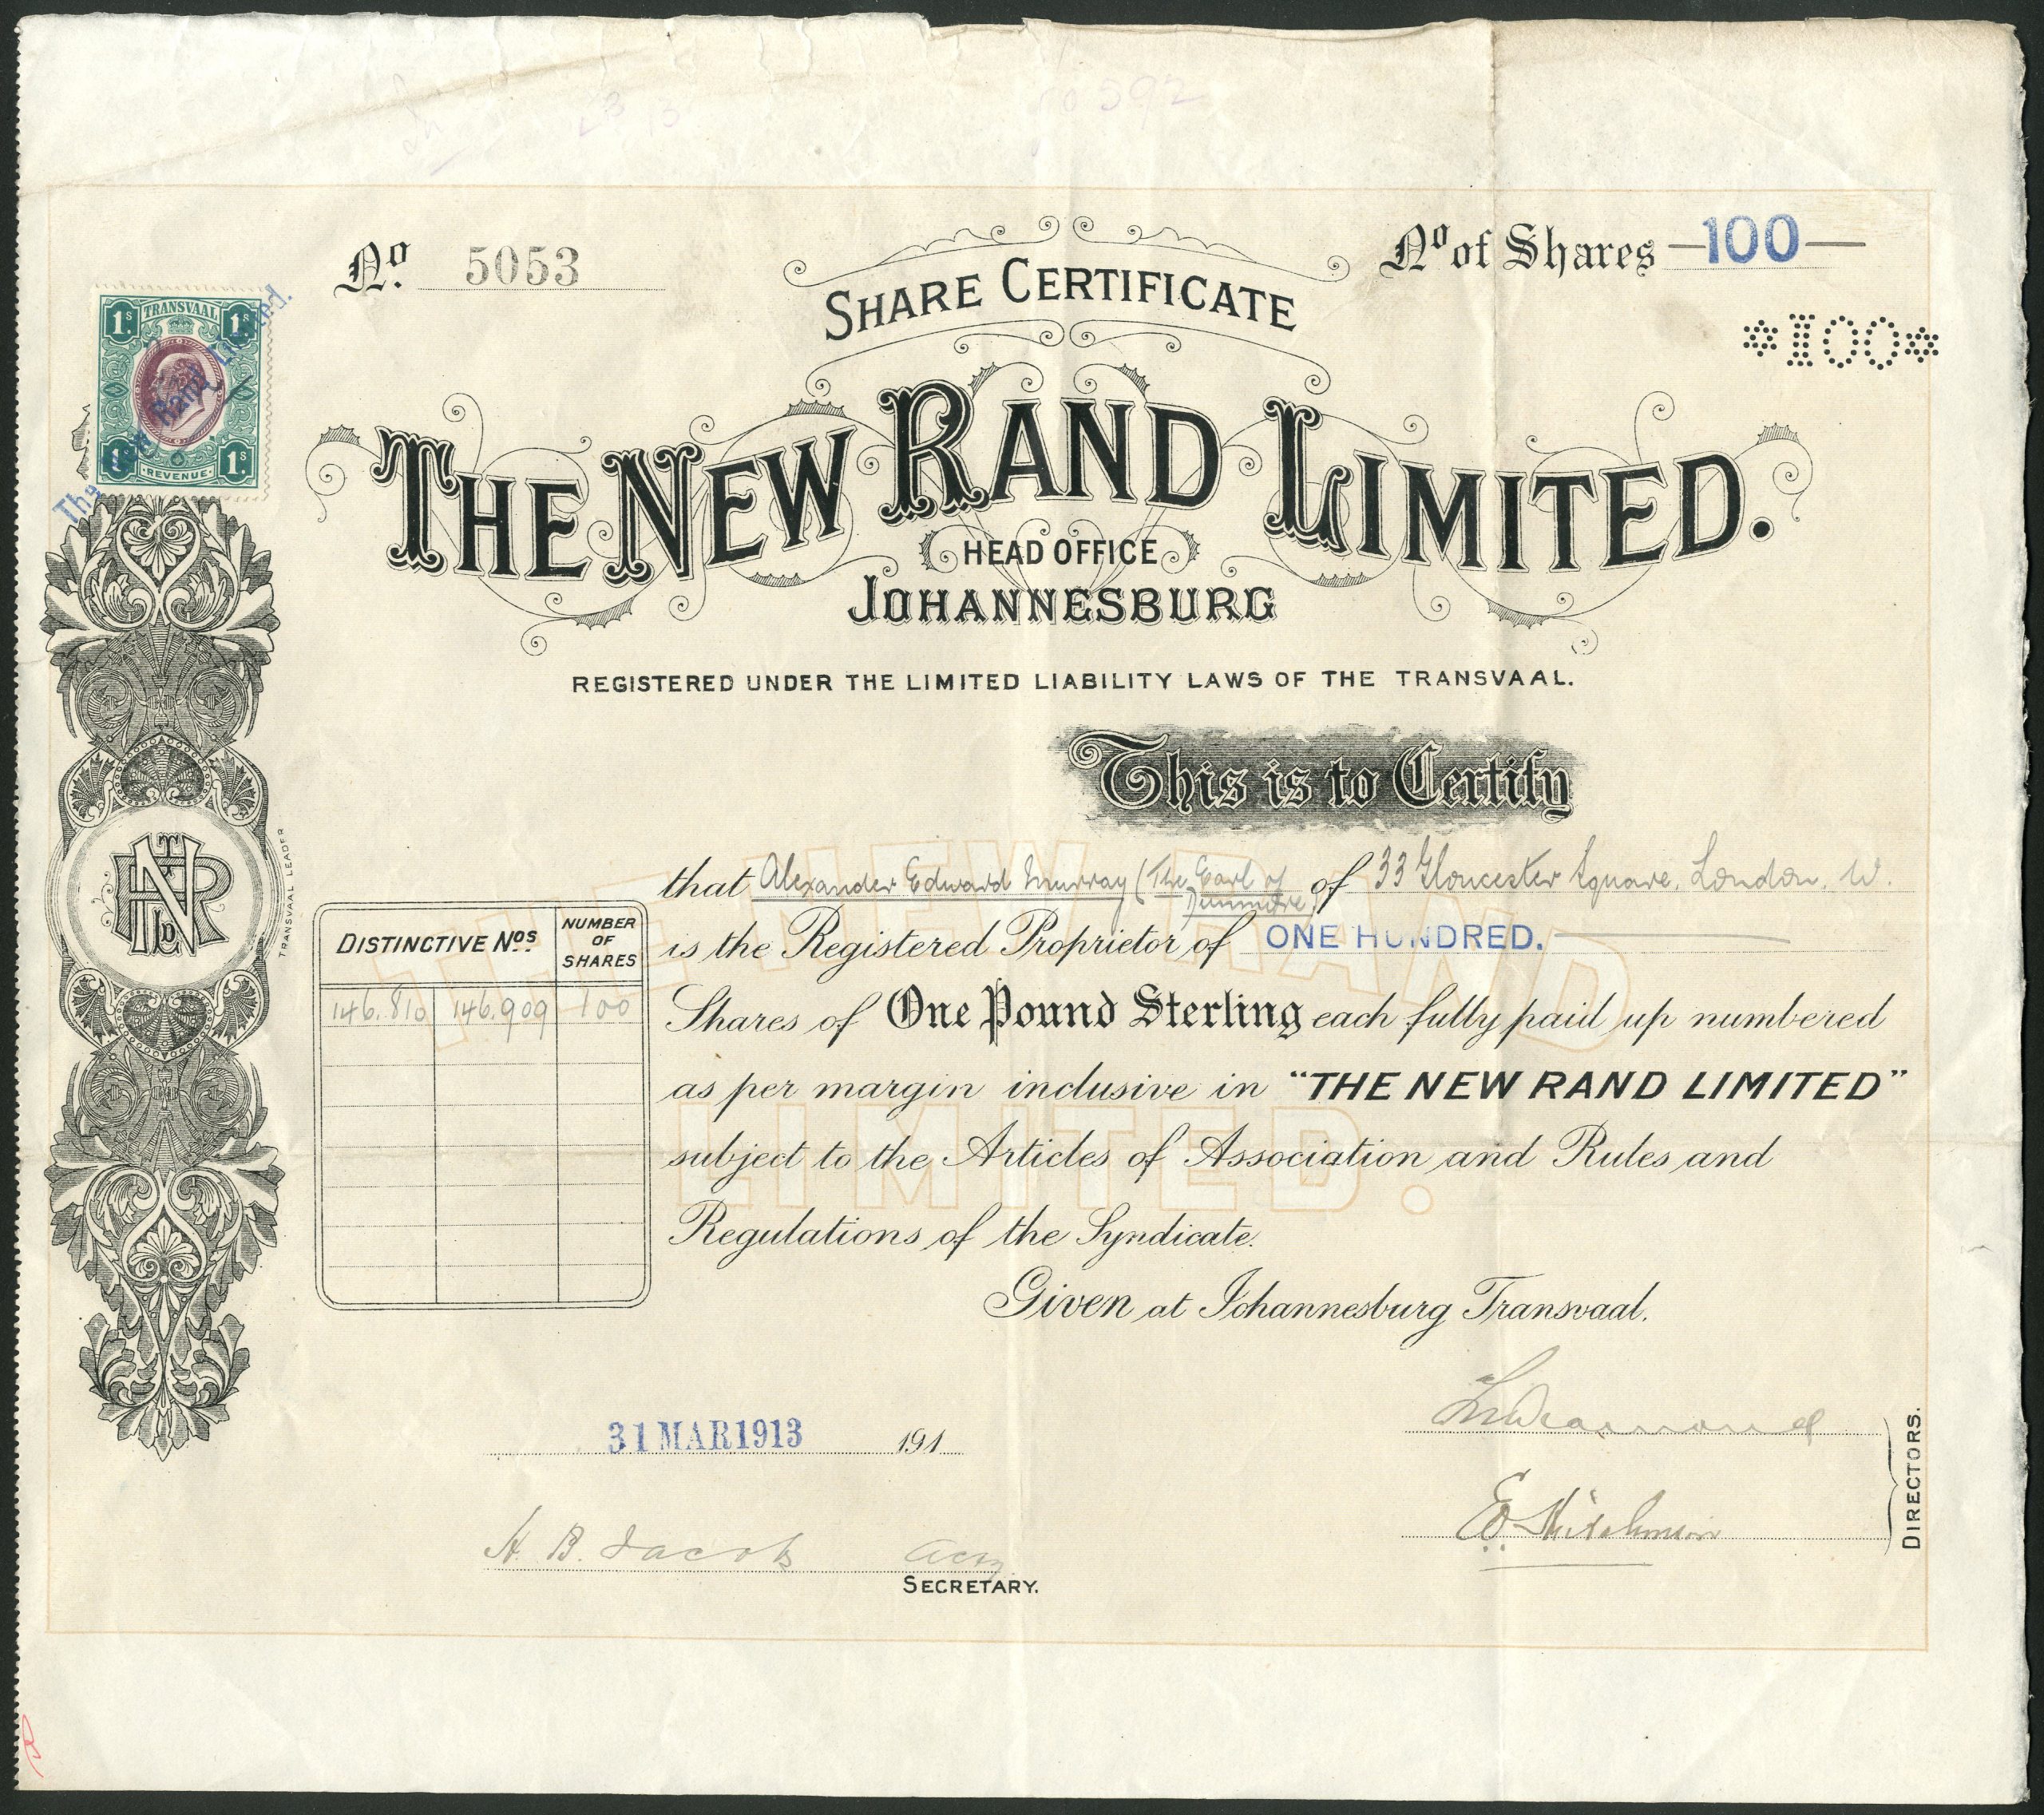 Nº. 5053
Nº of Shares 100
SHARE CERTIFICATE
*100*
1s. TRANSVAAL 1s.
1s. REVENUE 1s.
The New Rand Limited.
THE NEW RAND LIMITED.
HEAD OFFICE
JOHANNESBURG
REGISTERED UNDER THE LIMITED LIABILITY LAWS OF THE TRANSVAAL.
This is to Certify
that Alexander Edward Murray (The Earl of Dunmore) of 33 Gloucester Square, London, W.
is the Registered Proprietor of ONE HUNDRED.
Shares of One Pound Sterling each fully paid up numbered
as per margin inclusive in "THE NEW RAND LIMITED"
subject to the Articles of Association and Rules and
Regulations of the Syndicate.
Given at Johannesburg Transvaal.
DISTINCTIVE Nos. NUMBER OF SHARES
146.810 146.909 100
THE NEW RAND
LIMITED.
TRANSVAAL LEADER
31 MAR 1913 191
H. B. Jacobs Actg
SECRETARY.
DIRECTORS.